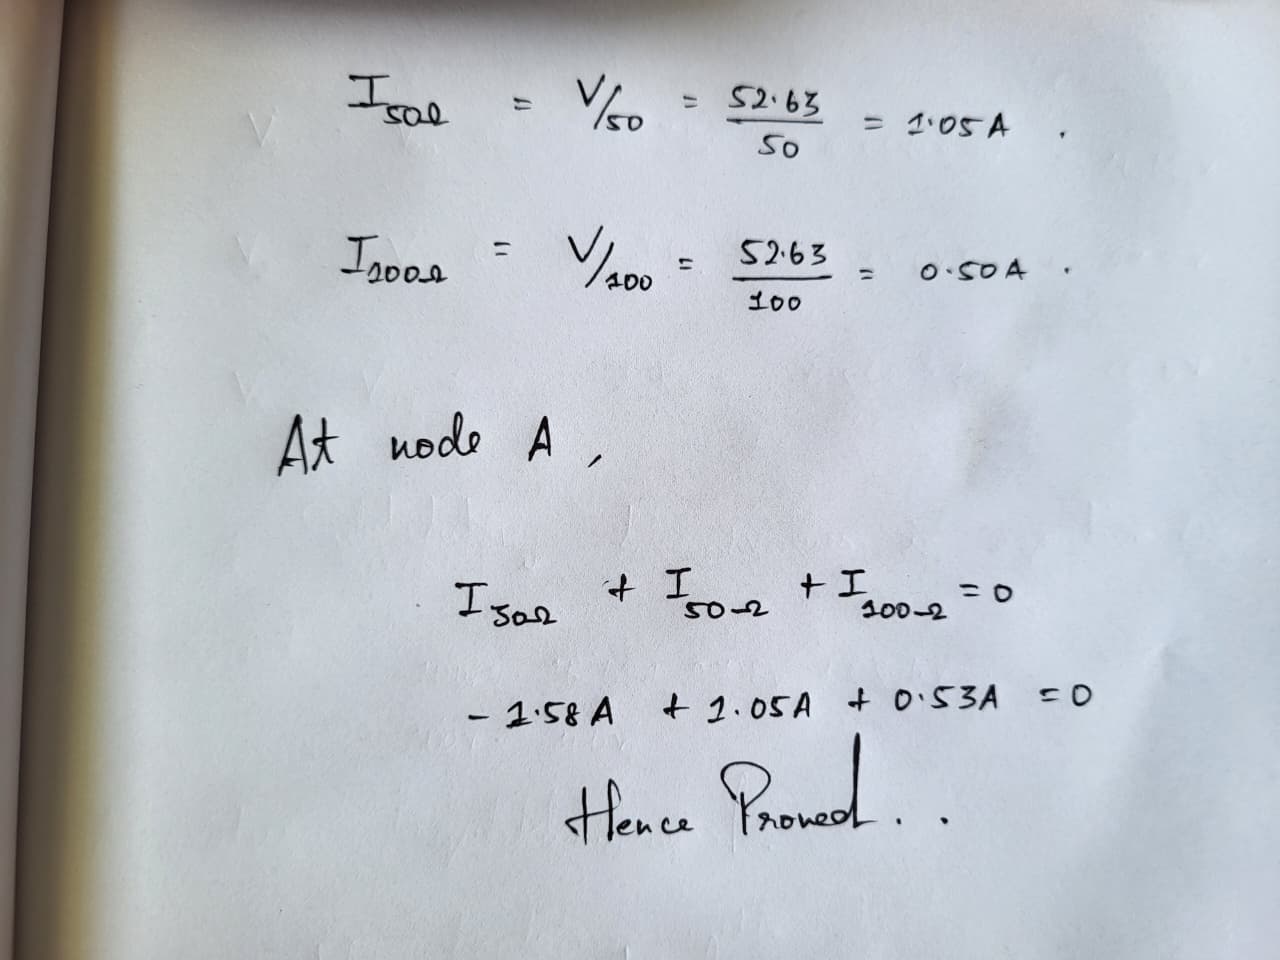 I50Ω = V/50 = 52.63/50 = 1.05 A .
I100Ω = V/100 = 52.63/100 = 0.50 A .
At node A ,
I50Ω + I50Ω + I100Ω = 0
- 1.58 A + 1.05 A + 0.53 A = 0
Hence Proved . .